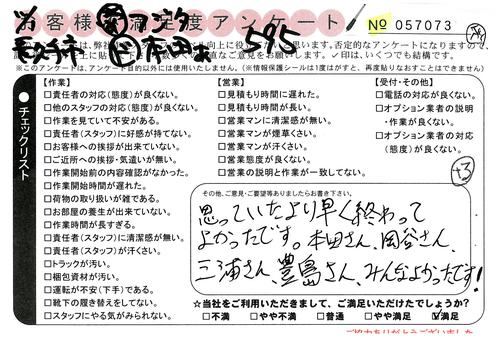 お客様満足度アンケート! No 057073
※このアンケートは、アンケート目的以外には使用いたしません。(※情報保護シールは1度はがすと、再度貼りなおすことはできません)
595
チェックリスト
【作業】
□責任者の対応(態度)が良くない。
□他のスタッフの対応(態度)が良くない。
□作業を見ていて不安がある。
□責任者(スタッフ)に好感が持てない。
□お客様への挨拶が出来ていない。
□ご近所への挨拶・気遣いが無い。
□作業開始前の内容確認がなかった。
□作業開始時間が遅れた。
□荷物の取り扱いが雑である。
□お部屋の養生が出来ていない。
□作業時間が長すぎる。
□責任者(スタッフ)に清潔感が無い。
□責任者(スタッフ)が汗くさい。
□トラックが汚い。
□梱包資材が汚い。
□運転が不安(下手)である。
□靴下の履き替えをしてない。
□スタッフにやる気がみられない。
【営業】
□見積もり時間に遅れた。
□見積もり時間が長い。
□営業マンに清潔感が無い。
□営業マンが煙草くさい。
□営業マンが汗くさい。
□営業態度が良くない。
□営業の説明と作業が一致してない。
【受付・その他】
□電話の対応が良くない。
□オプション業者の説明
・作業が良くない。
□オプション業者の対応
(態度)が良くない。
+3
その他、ご意見・ご要望等ありましたらお書き下さい。
思っていたより早く終わって
よかったです。本田さん、岡谷さん、
三浦さん、豊島さん、みんなよかったです!
☆当社をご利用いただきまして、ご満足いただけたでしょうか?
□不満 □やや不満 □普通 □やや満足 ☑満足
ご協力ありがとうございました